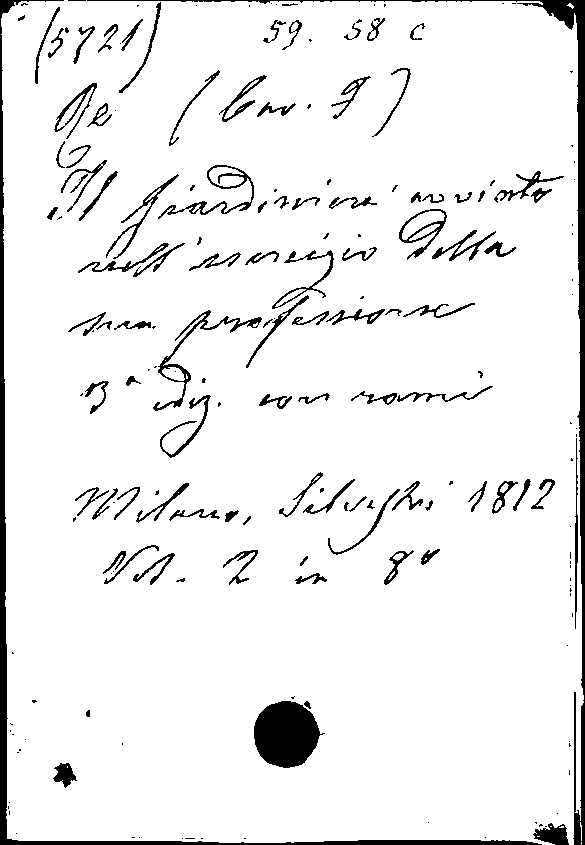 (5721) 59. 58 c
Re (Cav. F)
Il giardiniere avviato
nell'esercizio della
sua professione
3ª ediz. con rami
Milano, Silvestri 1812
Vol. 2 in 8º